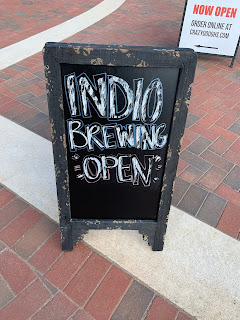 NOW OPEN
ORDER ONLINE AT
CRAZYDOUGHS.COM
INDIO
BREWING
OPEN